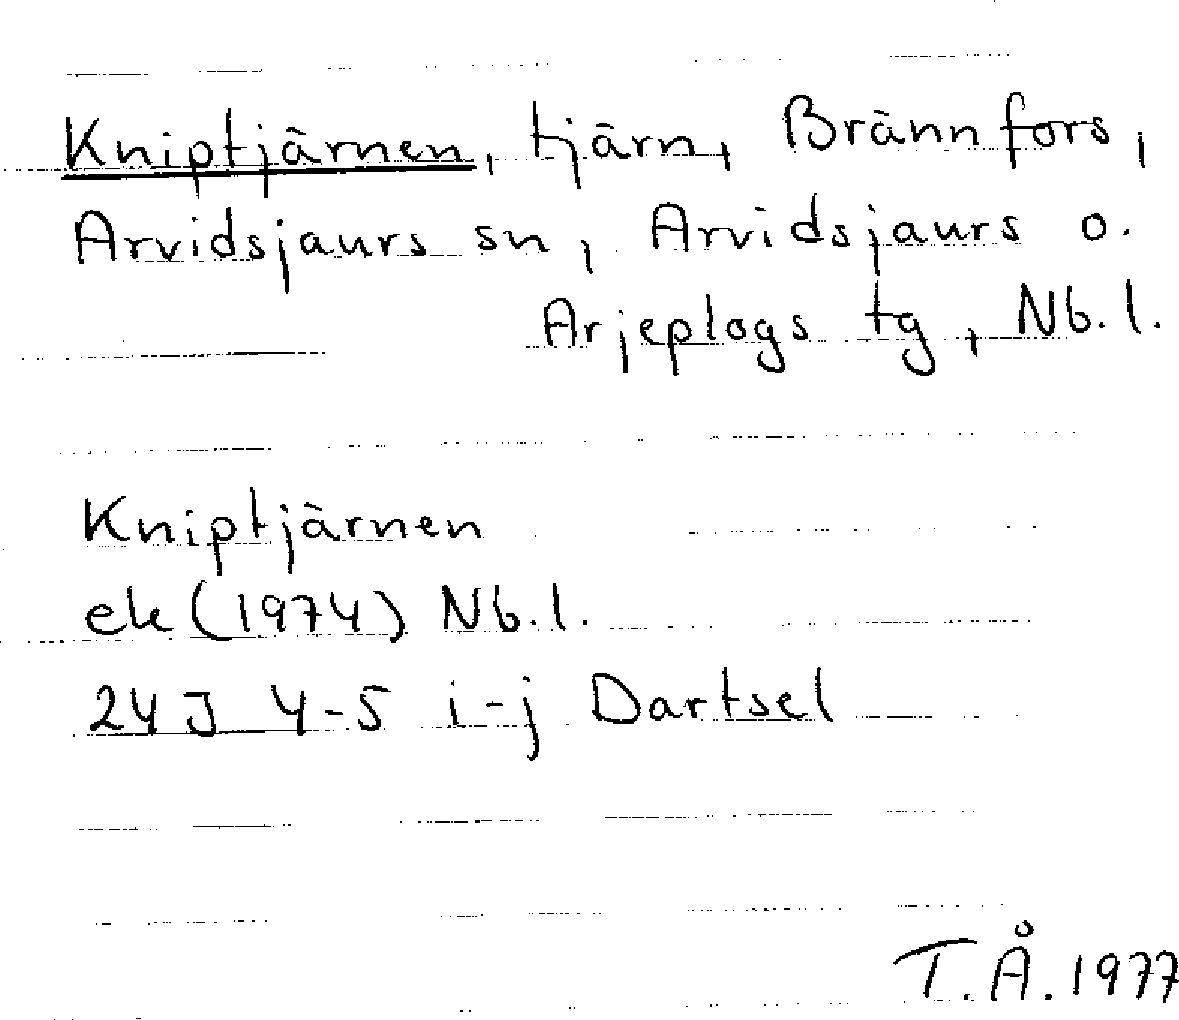 Kniptjärnen, tjärn, Brännfors,
Arvidsjaurs sn, Arvidsjaurs o.
Arjeplogs tg, Nb. l.
Kniptjärnen
ek (1974) Nb. l.
24 J 4-5 i-j Dartsel
T.Å. 1977